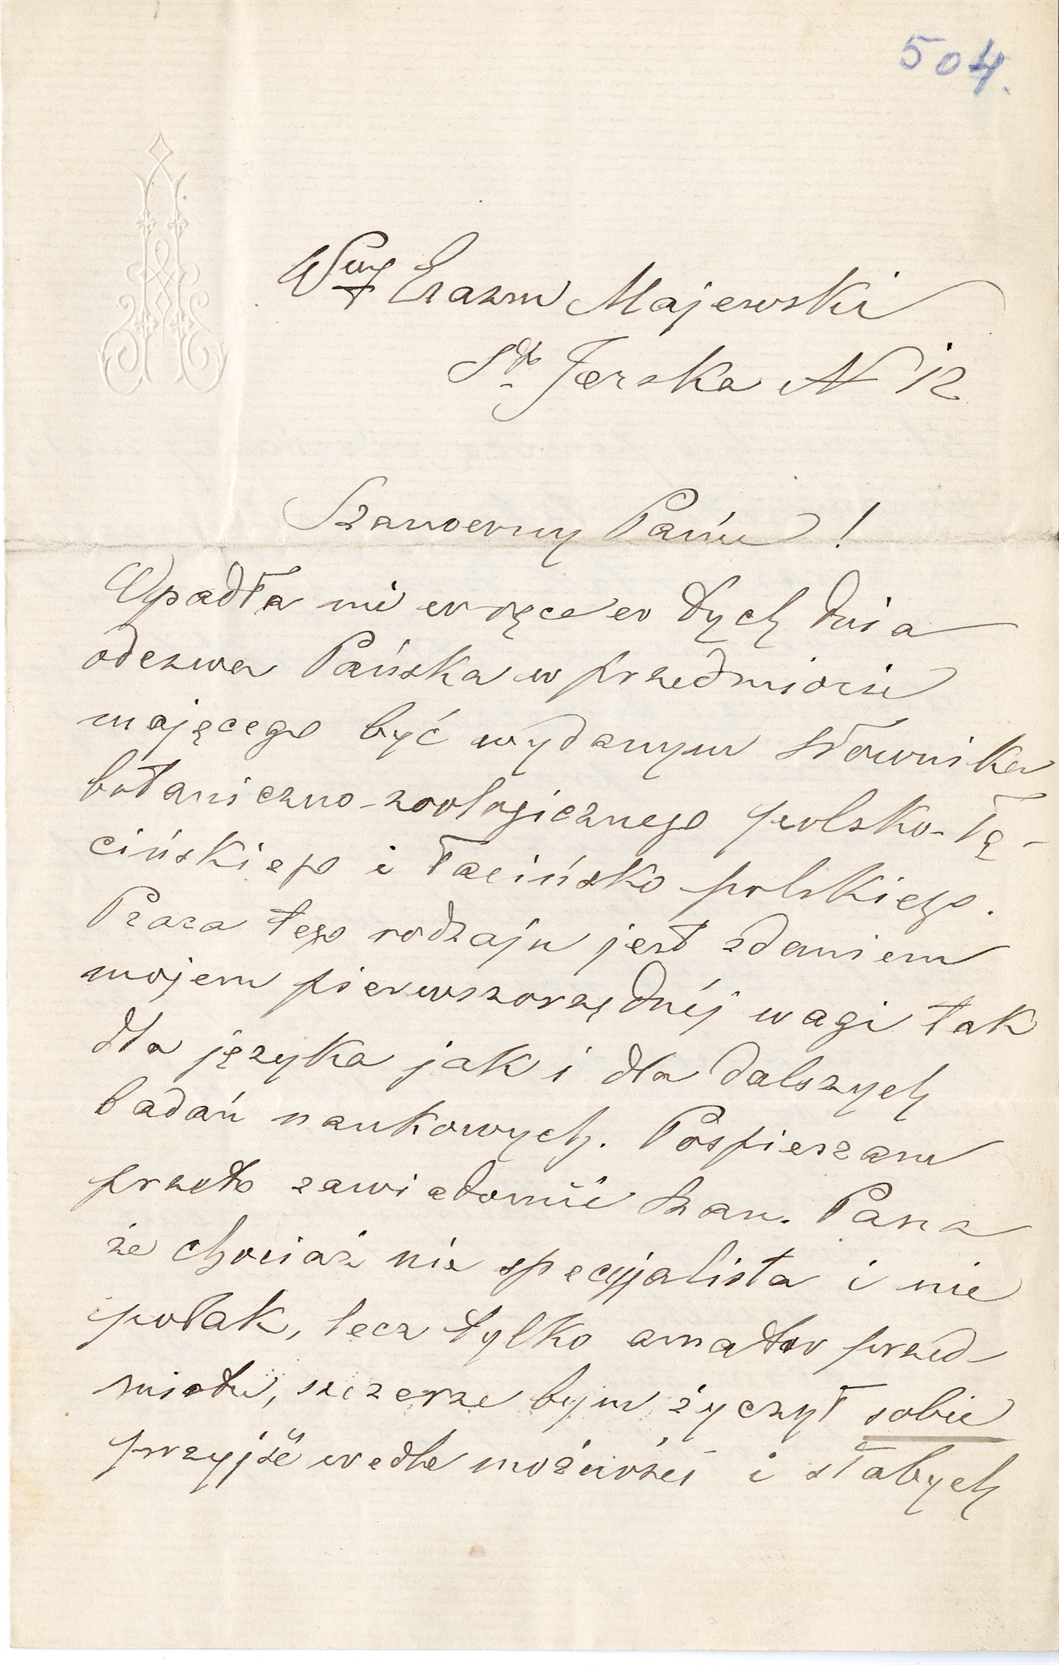 504.
Wny Erazm Majewski
Sto Jerska N 12
Szanowny Panie!
Wpadła mi w ręce w tych dnia
odezwa Pańska w przedmiocie
mającego być wydanym słownika
botaniczno-zoologicznego polsko-ła-
cińskiego i łacińsko polskiego.
Praca tego rodzaju jest zdaniem
mojem pierwszorzędnéj wagi tak
dla języka jak i dla dalszych
badań naukowych. Pospieszam
przeto zawiadomić Szan. Pana
że chociaż nie specyjalista i nie
polak, lecz tylko amator przed-
miotu, szczerze bym życzył sobie
przyjść wedle możności i słabych